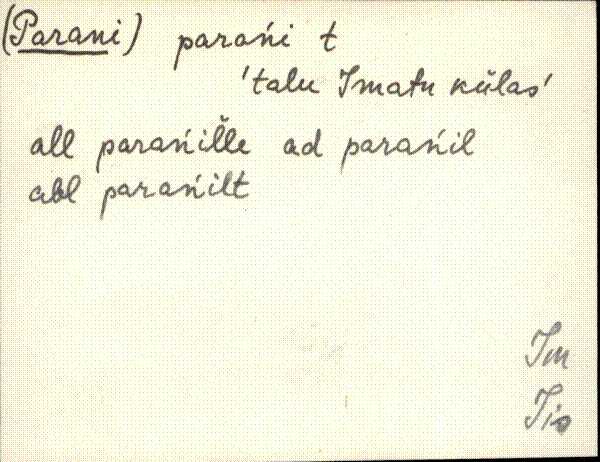 (Parani) parańi t
'talu Imatu külas'
all parańiĺle ad parańil
abl parańilt
Im
Jis